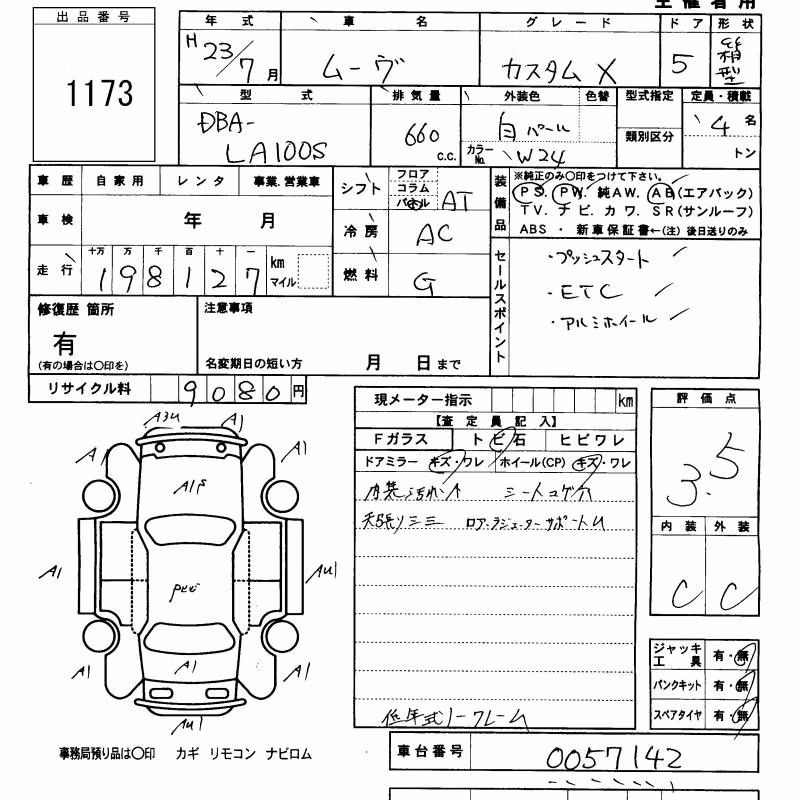 主催者用
出品番号
1173
年式 車名 グレード ドア 形状
H 23/7月 ムーヴ カスタム X 5 箱型
型式 排気量 外装色 色替 型式指定 定員・積載
DBA-LA100S 660 c.c. 白パール 類別区分 4名
カラーNo. W24 トン
車歴 自家用 レンタ 事業.営業車
シフト フロア コラム パネル AT
車検 年 月
冷房 AC
十万 万 千 百 十 一
走行 198127 km マイル
燃料 G
装備品 ※純正のみ○印をつけて下さい。
PS. PW. 純AW. AB(エアバック)
TV. ナビ. カワ. SR(サンルーフ)
ABS ・ 新車保証書←(注) 後日送りのみ
セールスポイント
・プッシュスタート
・ETC
・アルミホイール
修復歴 箇所
有
(有の場合は○印を)
注意事項
名変期日の短い方 月 日まで
リサイクル料 9080円
現メーター指示 km
【査定員記入】
Fガラス トビ石 ヒビワレ
ドアミラー キズ・ワレ ホイール(CP) キズ・ワレ
内装汚れ小 シートコゲ穴
天張りシミ ロアラジエーターサポートU
低年式ノークレーム
評価点
3.5
内装 外装
C C
ジャッキ工具 有・無
パンクキット 有・無
スペアタイヤ 有・無
A3U A1
A1 A1
A1 P
A1 AU1
Pサビ
A1 A1 A1
AU1
事務局預り品は○印 カギ リモコン ナビロム
車台番号 0057142